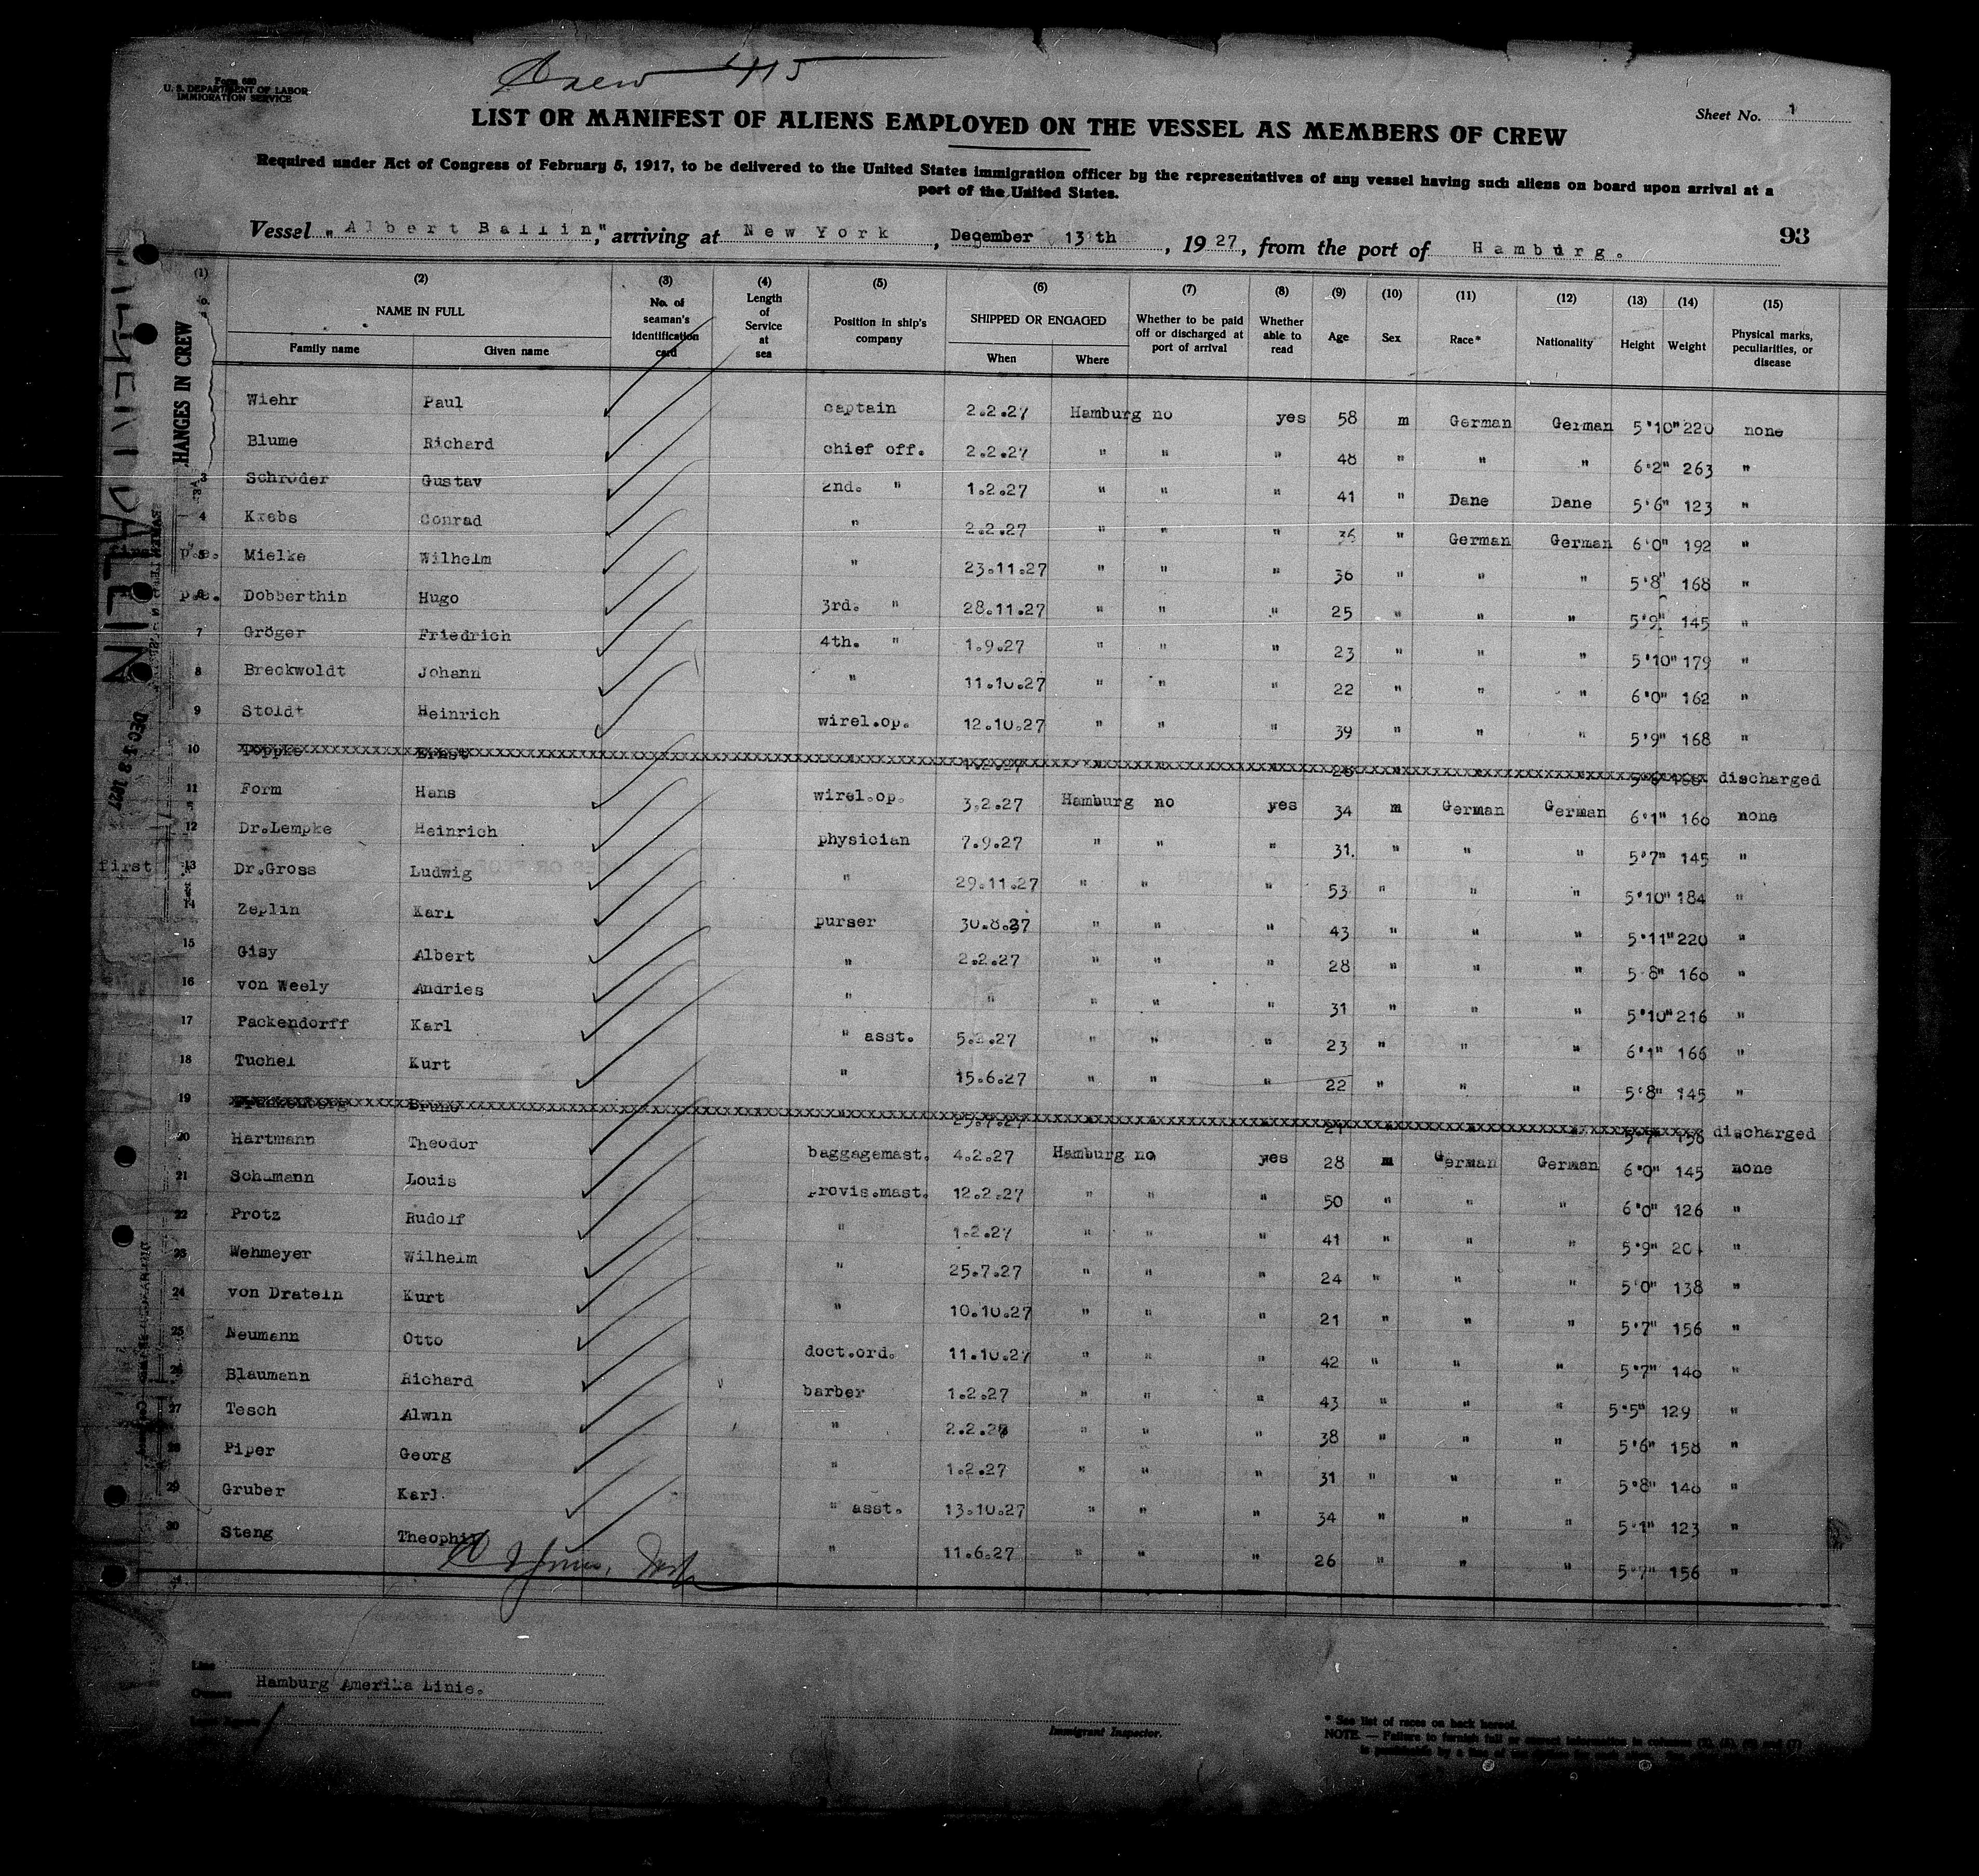 Crew 415
Form 680
U. S. DEPARTMENT OF LABOR
IMMIGRATION SERVICE
Sheet No. 1
LIST OR MANIFEST OF ALIENS EMPLOYED ON THE VESSEL AS MEMBERS OF CREW
Required under Act of Congress of February 5, 1917, to be delivered to the United States immigration officer by the representatives of any vessel having such aliens on board upon arrival at a
port of the United States.
Vessel „Albert Ballin", arriving at New York, December 13th, 1927, from the port of Hamburg.
93
(1) (2) (3) (4) (5) (6) (7) (8) (9) (10) (11) (12) (13) (14) (15)
NAME IN FULL Family name Given name No. of seaman's identification card Length of Service at sea Position in ship's company SHIPPED OR ENGAGED When Where Whether to be paid off or discharged at port of arrival Whether able to read Age Sex Race* Nationality Height Weight Physical marks, peculiarities, or disease
Wiehr Paul captain 2.2.27 Hamburg no yes 58 m German German 5'10" 220 none
Blume Richard chief off. 2.2.27 " " " 48 " " " 6'2" 263 "
3 Schröder Gustav 2nd. " 1.2.27 " " " 41 " Dane Dane 5'6" 123 "
4 Krebs Conrad " 2.2.27 " " " 36 " German German 6'0" 192 "
p.e. Mielke Wilhelm " 23.11.27 " " " 36 " " " 5'8" 168 "
p.e. Dobberthin Hugo 3rd. " 28.11.27 " " " 25 " " " 5'9" 145 "
7 Gröger Friedrich 4th. " 1.9.27 " " " 23 " " " 5'10" 179 "
8 Breckwoldt Johann " 11.10.27 " " " 22 " " " 6'0" 162 "
9 Stoldt Heinrich wirel.op. 12.10.27 " " " 39 " " " 5'9" 168 "
10 Töppke Ernst discharged
11 Form Hans wirel.op. 3.2.27 Hamburg no yes 34 m German German 6'1" 160 none
12 Dr.Lempke Heinrich physician 7.9.27 " " " 31. " " " 5'7" 145 "
first 13 Dr.Gross Ludwig " 29.11.27 " " " 53 " " " 5'10" 184 "
14 Zeplin Karl purser 30.8.27 " " " 43 " " " 5'11" 220 "
15 Gisy Albert " 2.2.27 " " " 28 " " " 5'8" 160 "
16 von Weely Andries " " " " " 31 " " " 5'10" 216 "
17 Packendorff Karl " asst. 5.2.27 " " " 23 " " " 6'1" 166 "
18 Tuchel Kurt " 15.6.27 " " " 22 " " " 5'8" 145 "
19 Bruno 25.7.27 21 discharged
20 Hartmann Theodor baggagemast. 4.2.27 Hamburg no yes 28 m German German 6'0" 145 none
21 Schumann Louis provis.mast. 12.2.27 " " " 50 " " " 6'0" 126 "
22 Protz Rudolf " 1.2.27 " " " 41 " " " 5'9" "
23 Wehmeyer Wilhelm " 25.7.27 " " " 24 " " " 5'0" 138 "
24 von Drateln Kurt " 10.10.27 " " " 21 " " " 5'7" 156 "
25 Neumann Otto doct.ord. 11.10.27 " " " 42 " " " 5'7" 140 "
26 Blaumann Richard barber 1.2.27 " " " 43 " " " 5'5" 129 "
27 Tesch Alwin " 2.2.27 " " " 38 " " " 5'6" 158 "
28 Piper Georg " 1.2.27 " " " 31 " " " 5'8" 148 "
29 Gruber Karl " asst. 13.10.27 " " " 34 " " " 5'1" 123 "
30 Steng Theophil " 11.6.27 " " " 26 " " " 5'7" 156 "
CHANGES IN CREW
DEC 13 1927
Line
Owners Hamburg Amerika Linie.
Immigrant Inspector.
* See list of races on back hereof.
NOTE. — Failure to furnish full or correct information in columns